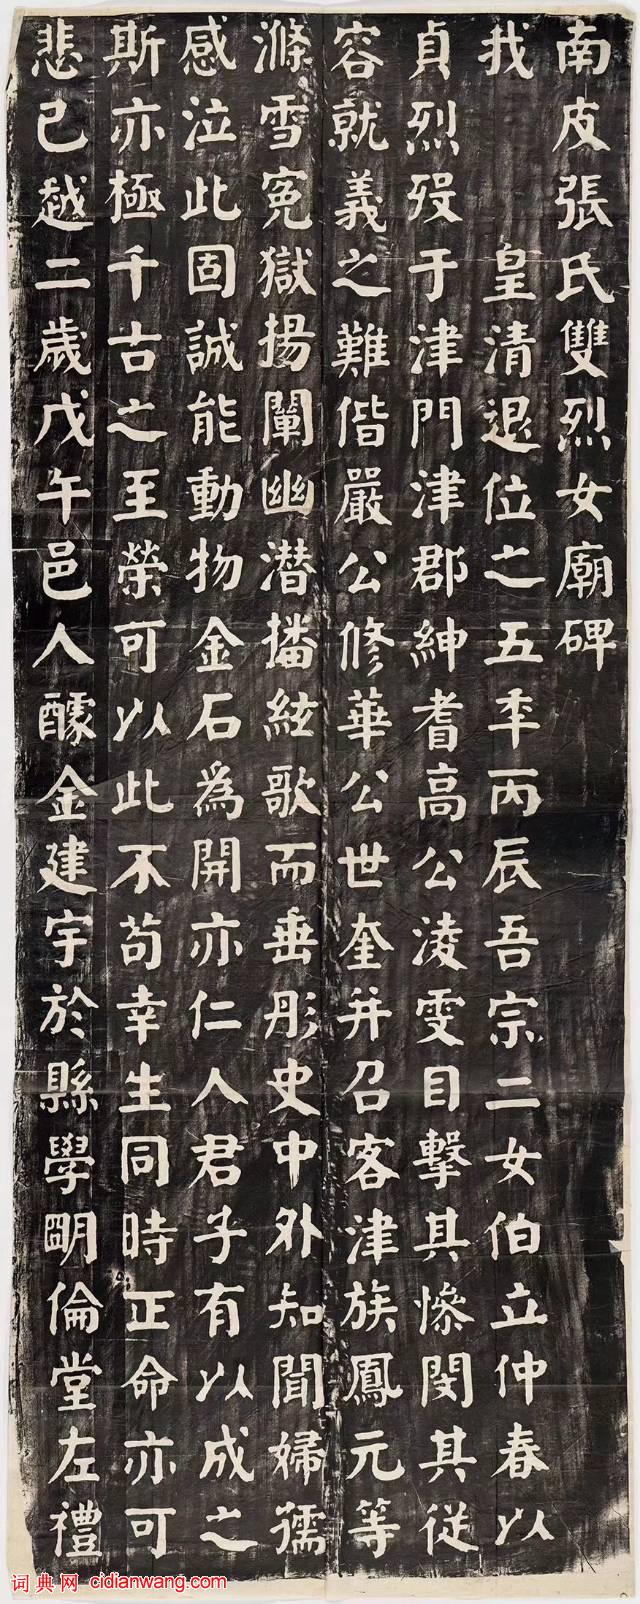 南皮張氏雙烈女廟碑
我　皇清退位之五年丙辰吾宗二女伯立仲春以
貞烈歿于津門津郡紳耆高公淩雯目擊其慘閔其從
容就義之難偕嚴公修華公世奎并召客津族鳳元等
滌雪冤獄揚闡幽潛播絃歌而垂彤史中外知聞婦孺
感泣此固誠能動物金石為開亦仁人君子有以成之
斯亦極千古之至榮可以此不苟幸生同時正命亦可
悲已越二歲戊午邑人醵金建宇於縣學明倫堂左禮
词典网 cidianwang.com